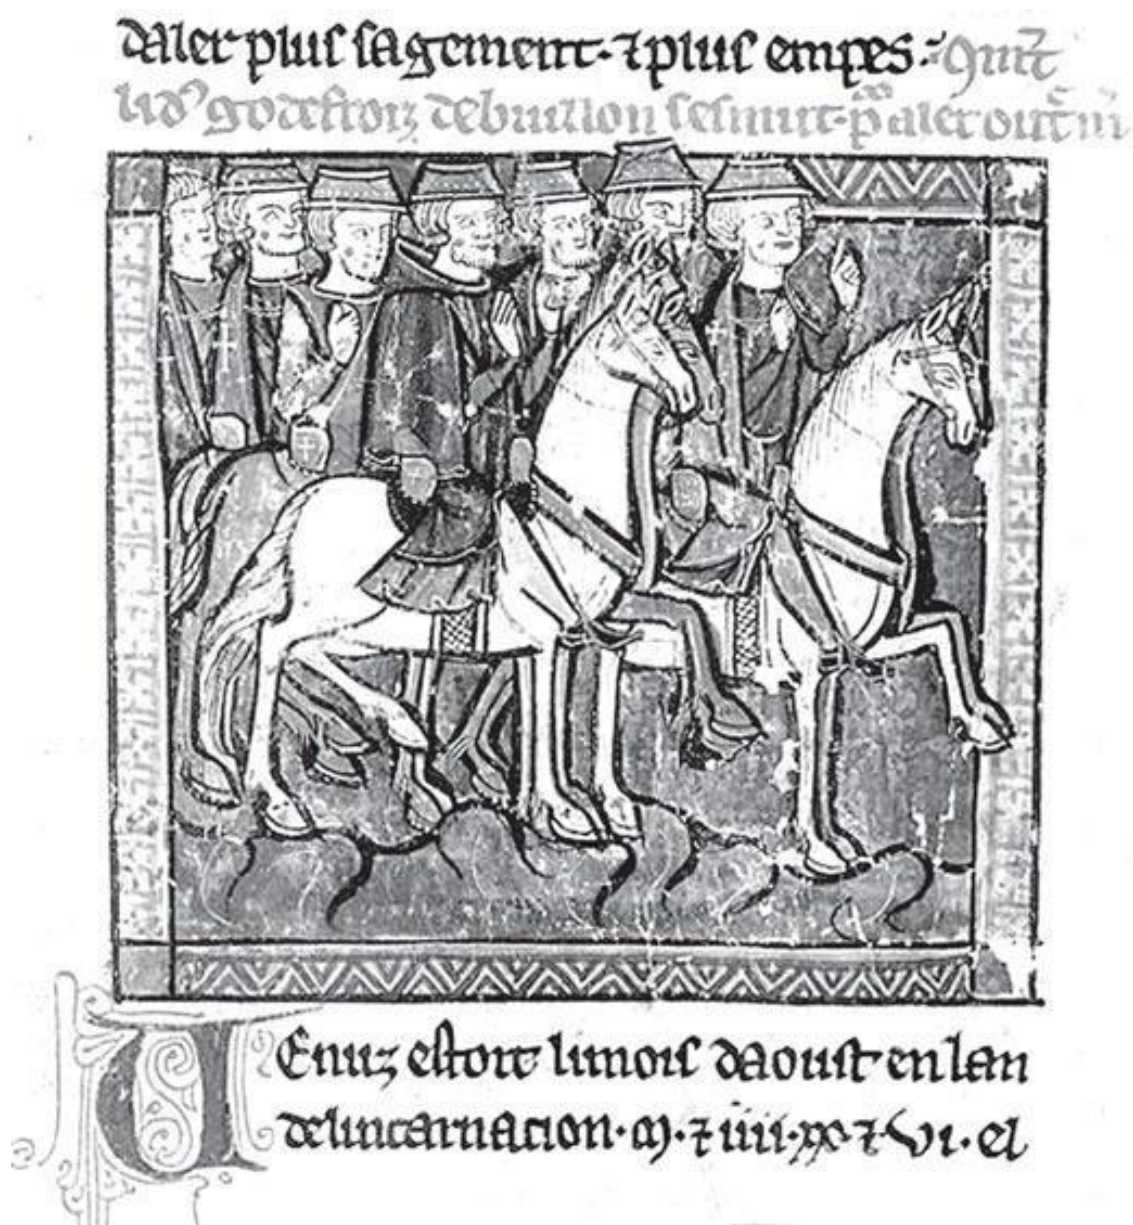 daler plus sagement · ⁊ plus empes ·
li dꝰ godefroiz de buillon sesmut · p aler outͤ m
Enuz estoit li mois daoust en lan
de lincarnacion · m · ⁊ iiii · xx · ⁊ vi · el